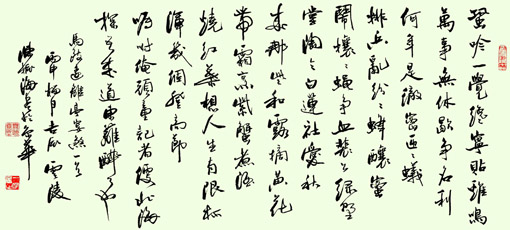 蛩吟一覺纔寧貼雞鳴
萬事無休歇爭名利
何年是徹密匝々蟻
排兵亂紛々蜂釀蜜
鬧攘々蠅爭血裴公綠野
堂陶令白蓮社愛秋
來那些和露摘黃花
帶霜烹紫蟹煮酒
燒紅葉想人生有限杯
渾幾個登高節
囑咐俺頑童記者便北海
探吾來道東籬醉了也
馬致遠離亭宴煞一首